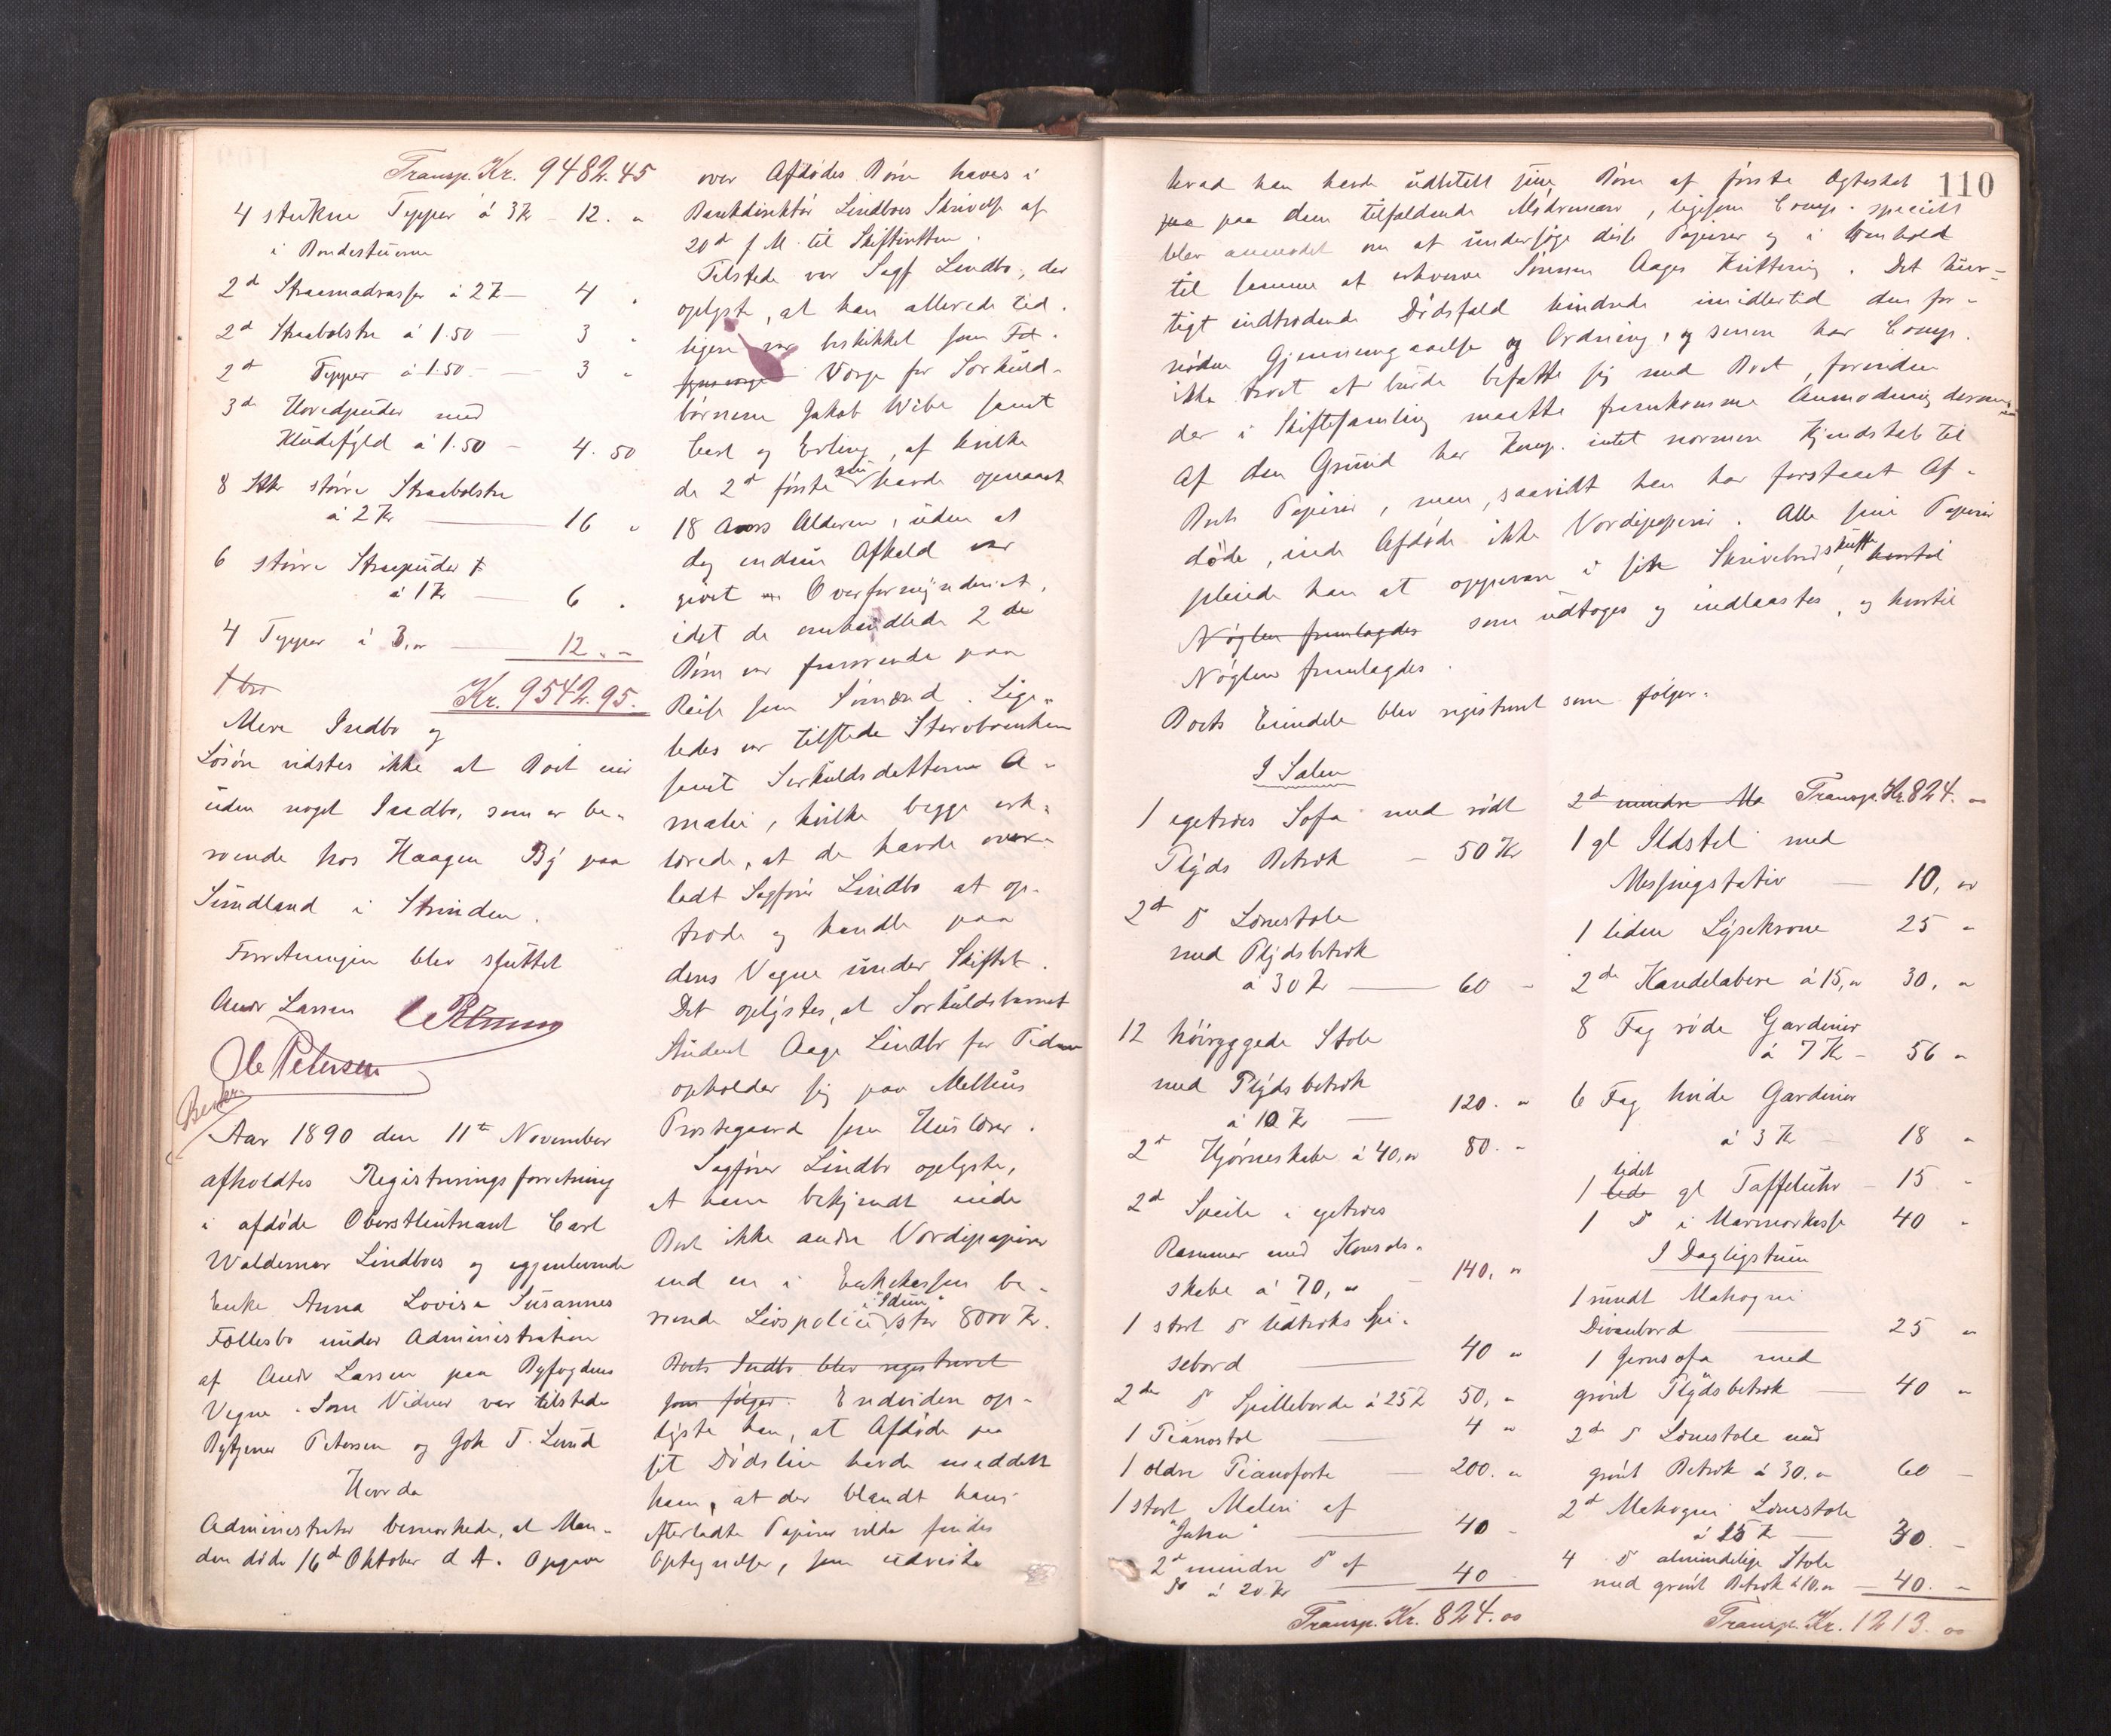 Transp. Kr. 9482.45
4 strikne Tepper á 3 Kr - 12. "
i Bondestuerne
2d Straamadrasser á 2 Kr — 4 "
2d Straabolstre á 1.50 — 3 "
2d Tepper á 1.50 — 3 "
3de Hovedpuder med
Kludefyld á 1.50 — 4.50
8 Stkr større Straabolstre
á 2 Kr — 16 "
6 større Straapuder
á 1 Kr — 6 "
4 Tepper á 3," — 12. "
Kr. 9542.95.
Mere Indbo og
Løsøre vidstes ikke at Boet eie
uden noget Indbo, som er be-
roende hos Haagen By paa
Sundland i Strinden.
Forretningen blev sluttet
Andr Larsen
Ole Petersen
Aar 1890 den 11te November
afholdtes Registreringsforretning
i afdøde Oberstleutnant Carl
Waldemar Lindboes og gjenlevende
Enke Anna Lovise Susannes
Fællesbo under Administration
af Andr Larsen paa Byfogdens
Vegne. Som Vidner var tilstede
Bytjener Petersen og Joh T. Lund
Hvorda
Administrator bemærkede, at Man-
den døde 16de Oktober d. A. Opgave
over Afdødes Børn haves i
Bankdirektør Lindboes Skrivelse af
20de f. M. til Skifteretten.
Tilstede var Sagf Lindbo, der
oplyste, at han allerede tid-
ligere var beskikket som For-
Værge for Særkuld-
børnene Jakob Wibe samt
Carl og Erling, af hvilke
de 2de første nu havde opnaaet
18 Aars Alderen, uden at
dog endnu Afkald var
givet Overformynderiet,
idet de omhandlede 2de
Børn var fraværende paa
Reise som Sømænd. Lige-
ledes var tilstede Stervboenken
samt Særkuldsdatteren A-
malie, hvilke begge erk-
lærede, at de havde over-
ladt Sagfører Lindbo at op-
træde og handle paa
deres Vegne under Skiftet.
Det oplystes, at Særkuldsbarnet
Student Aage Lindbo for Tiden
opholder sig paa Melhus
Prostegaard som Huslærer.
Sagfører Lindbo oplyste,
at ham bekjendt eiede
Boet ikke andre Værdipapirer
end en i Enkekassen be-
roende Livspolice i "Idun" stor 8000 Kr.
Boets Indbo blev registreret
som følger. Endvidere op-
lyste han, at Afdøde paa
sit Dødsleie havde meddelt
ham, at der blandt hans
efterladte Papirer vilde findes
Optegnelser, som udviste
110
hvad han havde udbetalt sine Børn af første Ægteskab
paa paa dem tilfaldende Mødrenearv, ligesom Comp. specielt
blev anmodet om at undersøge disse Papirer og i Henhold
til samme at erhverve Sønnen Aages Kvittering. Det hur-
tigt indtrædende Dødsfald hindrede imidlertid den for-
nødne Gjennemgaaelse og Ordning, og senere har Comp.
ikke troet at burde befatte sig med Boet, forinden
der i Skiftesamling maatte fremkomme Anmodning derom.
Af den Grund har Komp. intet nærmere Kjendskab til
Boets Papirer, men, saavidt han har forstaaet Af-
døde, eiede Afdøde ikke Værdipapirer. Alle sine Papirer
pleiede han at opbevare i sit Skrivebordsskuffe, hvortil
Nøglen fremlagdes som udtoges og indlaastes, og hvortil
Nøglen fremlagdes.
Boets Eiendele blev registreret som følger:
I Salen
1 egetræes Sofa med rødt
Plyds Betræk — 50 Kr
2de do Lænestole
med Plydsbetræk
á 30 Kr — 60 "
12 høiryggede Stole
med Plydsbetræk
á 10 Kr — 120. "
2de Hjørneskabe á 40," 80. "
2de Speile i egetræes
Rammer med Konsol-
skabe á 70, " — 140, "
1 stort do Udtræks Spi-
sebord — 40 "
2de do Spilleborde á 25 Kr 50, "
1 Pianostol — 4 "
1 ældre Pianoforte — 200. "
1 stort Maleri af
— 40 "
2de mindre do af
do á 20 Kr — 40
Transp. Kr. 824.00
2de mindre Ma Transp. Kr. 824. 00
1 gl Ildstel med
Messingstativ — 10, "
1 liden Lysekrone 25 "
2de Kandelabere á 15," 30, "
8 Fag røde Gardiner
á 7 Kr - 56 "
6 Fag hvide Gardiner
á 3 Kr — 18 "
1 lidet gl Taffeluhr - 15 "
1 do i Marmorkasse 40 "
I Dagligstuen
1 rundt Mahogni
Divanbord — 25 "
1 Jernsofa med
grønt Plydsbetræk — 40 "
2de do Lænestole med
grønt Betræk á 30. " 60 —
2de Mahogni Lænestole
á 15 Kr — 30. —
4 do almindelige Stole
med grønt Betræk á 10," — 40. "
Transp. Kr. 1213. 00